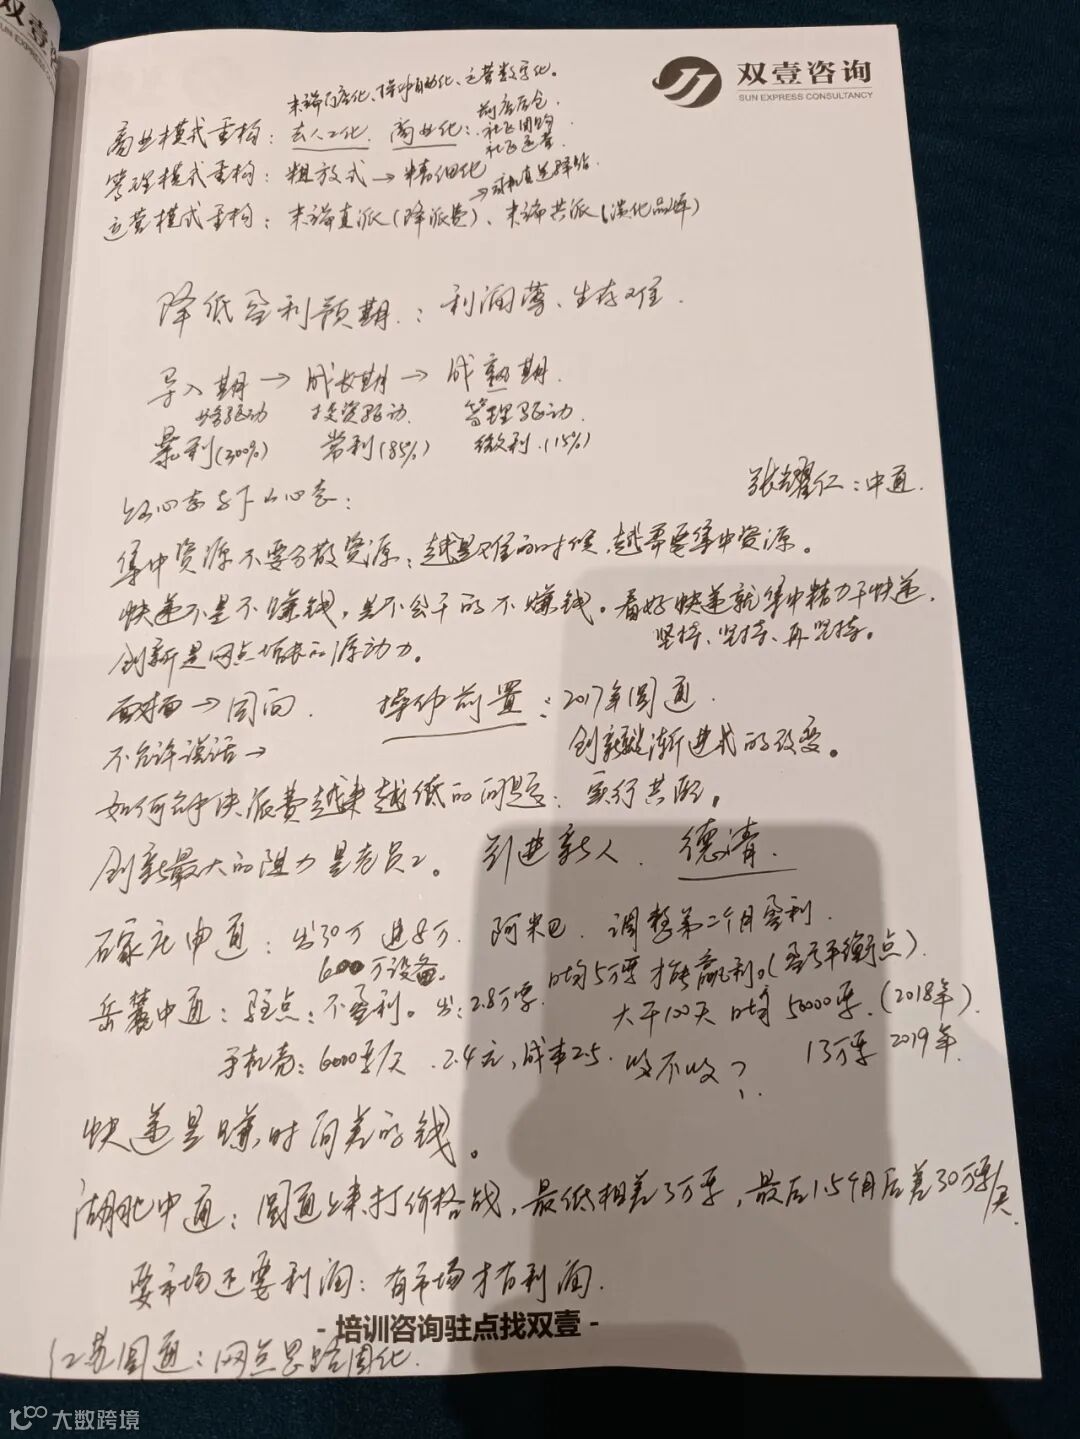 双壹咨询
SUN EXPRESS CONSULTANCY
末端门店化、操作自动化、运营数字化。
商业模式重构：去人工化. 商业化：前店后仓
社区团购
社区运营
管理模式重构：粗放式→精细化
→司机直送驿站
运营模式重构：末端直派(降派费)、末端共派(淡化品牌)
降低盈利预期：利润薄、生存难.
导入期→成长期→成熟期.
业务驱动 投资驱动. 管理驱动.
暴利(300%) 常利(85%) 微利.(15%)
上心态与下心态：
张耀仁：中通.
集中资源不要分散资源：越是难的时候,越需要集中资源。
快递不是不赚钱，是不会干的不赚钱。看好快递就集中精力干快递.
坚持、坚持、再坚持。
创新是网点增长的源动力。
面对面→同向. 操作前置：2017年圆通.
不允许说话→ 创新是渐进式的改变。
如何解决派费越来越低的问题：实行共配。
创新最大的阻力是老员工。 引进新人. 德清.
石家庄申通：出30万 进8万. 阿米巴. 调整第二个月盈利.
600万设备。
岳麓中通：驻点：不盈利。出：2.8万票. 日均5万票才能赢利。(盈亏平衡点)
大干100天 日均 50000票.(2018年)
手机壳：6000票/天. 2.4元,成本2.5. 收不收？ 13万票 2019年.
快递是赚时间差的钱。
湖北中通：圆通上来打价格战，最低相差3万票，最后1.5个月后差30万票/天.
要市场还要利润：有市场才有利润.
- 培训咨询驻点找双壹 -
江苏圆通：网点思路固化.
大数跨境